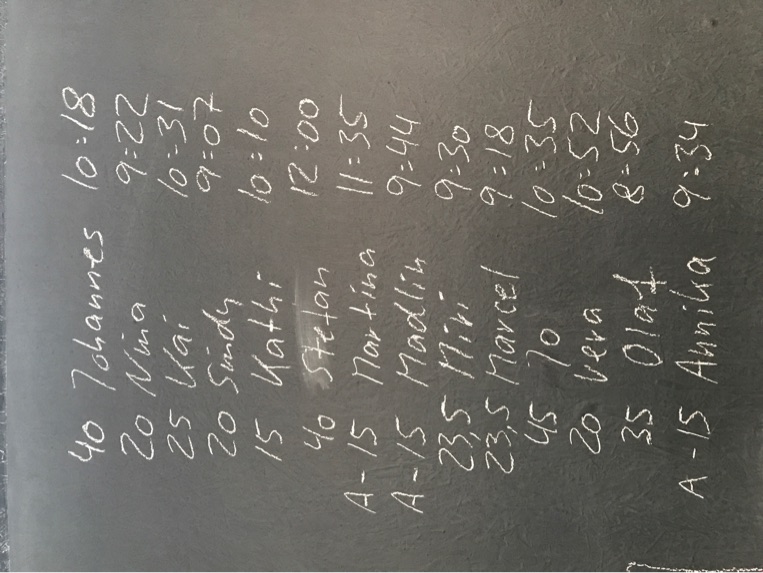 40 Johannes 10:18
20 Nina 9:22
25 Kai 10:31
20 Sindy 9:07
15 Kathi 10:10
40 Stefan 12:00
A-15 Martina 11:35
A-15 Madlin 9:44
23,5 Miri 9:30
23,5 Marcel 9:18
45 Jo 10:35
20 Vera 10:52
35 Olaf 8:56
A-15 Annika 9:34